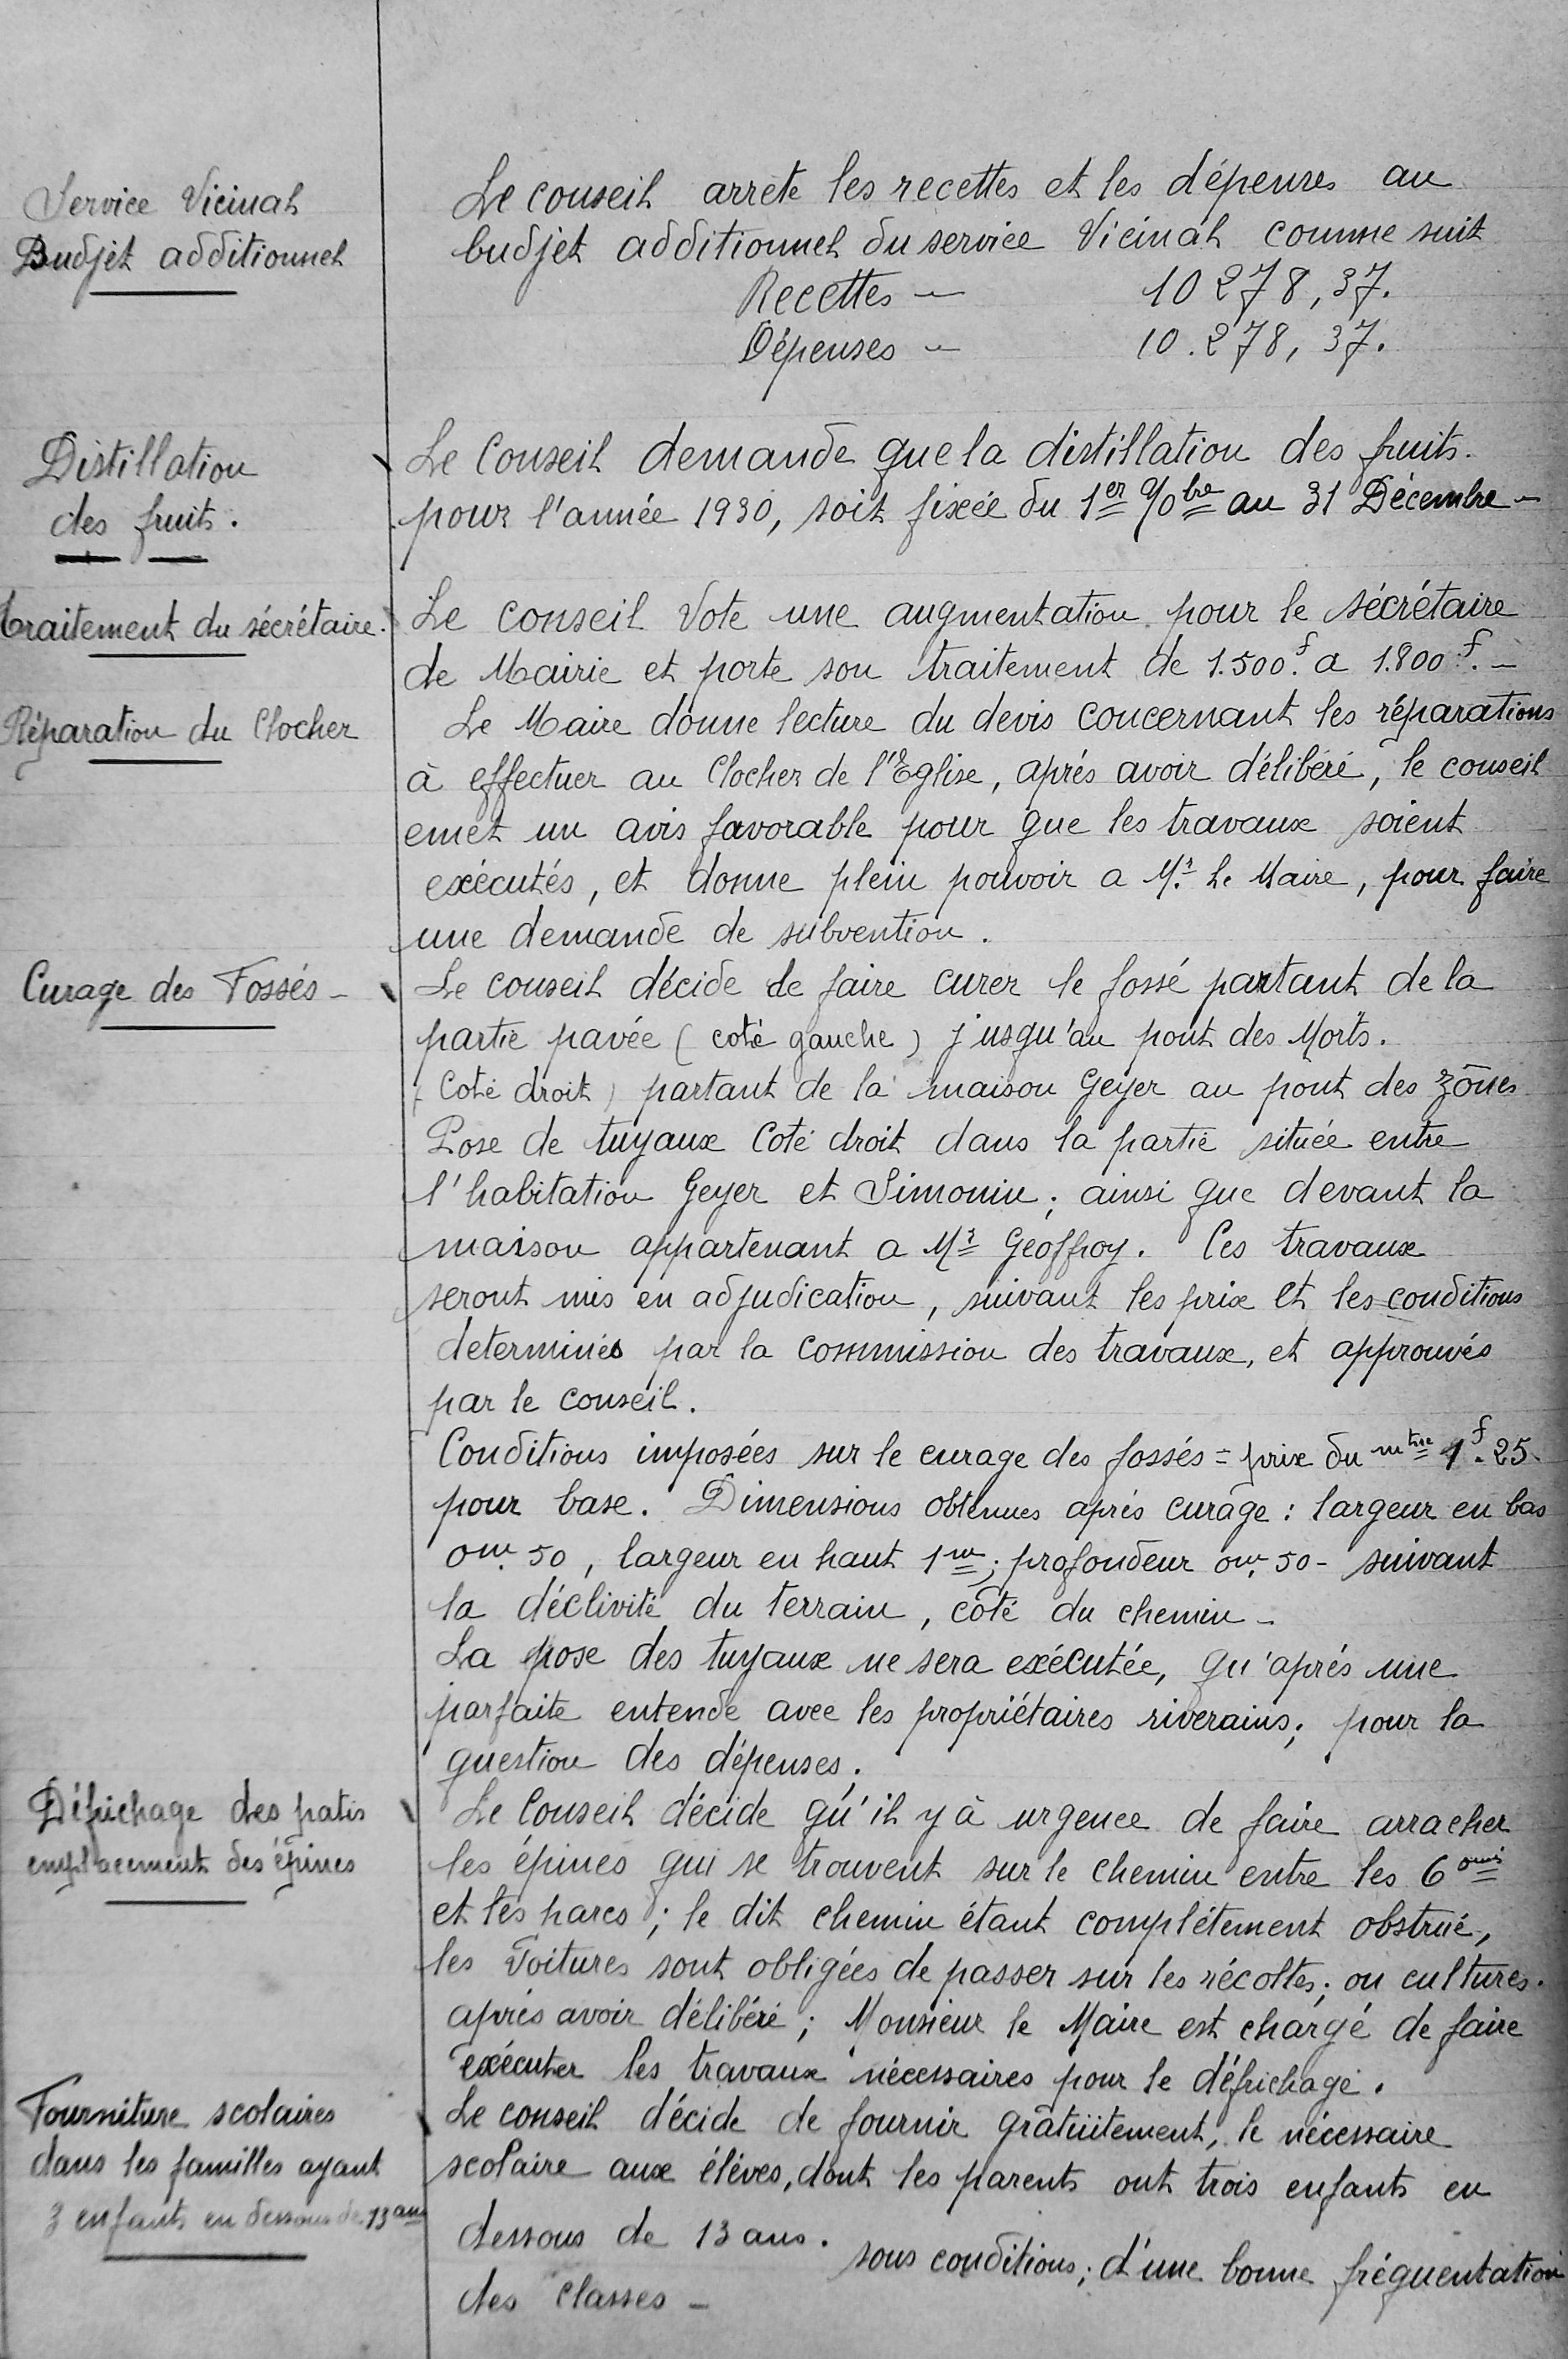 Service Vicinal
Budjet additionnel
Le conseil arrete les recettes et les dépenses au
budjet additionnel du service Vicinal comme suit
Recettes — 10278,37.
Dépenses — 10.278,37.
Distillation
des fruits.
Le Conseil demande que la distillation des fruits.
pour l'année 1930, soit fixée du 1er 9/bre au 31 Décembre -
traitement du sécrétaire.
Le conseil Vote une augmentation pour le sécrétaire
de Mairie et porte son traitement de 1.500f. a 1.800f. -
Réparation du Clocher
Le Maire donne lecture du devis concernant les réparations
à effectuer au Clocher de l'Eglise, aprés avoir délibéré, le conseil
emet un avis favorable pour que les travaux soient
exécutés, et donne plein pouvoir a Mr. Le Maire, pour faire
une demande de subvention.
Curage des Fossés -
Le conseil décide de faire curer le fossé partant de la
partie pavée ( coté gauche ) jusqu'au pont des Morts.
( Coté droit ) partant de la maison Geyer au pont des zônes
Pose de tuyaux Coté droit dans la partie située entre
l'habitation Geyer et Simonin ; ainsi que devant la
maison appartenant a Mr Geoffroy. Ces travaux
seront mis en adjudication, suivant les prix et les conditions
determinés par la commission des travaux, et approuvés
par le conseil.
Conditions imposées sur le curage des fossés = prix du mtre 1f.25
pour base. Dimensions obtenues aprés curage : largeur en bas
0m.50, largeur en haut 1m ; profondeur 0m,50 - suivant
la déclivité du terrain, côté du chemin -
La pose des tuyaux ne sera exécutée, qu'aprés une
parfaite entende avec les propriétaires riverains ; pour la
question des dépenses.
Défrichage des patis
emplacement des épines
Le Conseil décide qu'il y à urgence de faire arracher
les épines qui se trouvent sur le chemin entre les 6
et les parcs ; le dit chemin étant complétement obstrué,
les Voitures sont obligées de passer sur les récoltes ; ou cultures.
aprés avoir délibéré ; Monsieur le Maire est chargé de faire
exécuter les travaux nécessaires pour le défrichage.
Fourniture scolaires
dans les familles ayant
3 enfants en dessous de 13 ans
Le conseil décide de fournir gratuitement, le nécessaire
scolaire aux éléves, dont les parents ont trois enfants en
dessous de 13 ans. sous conditions ; d'une bonne fréquentation
des classes -